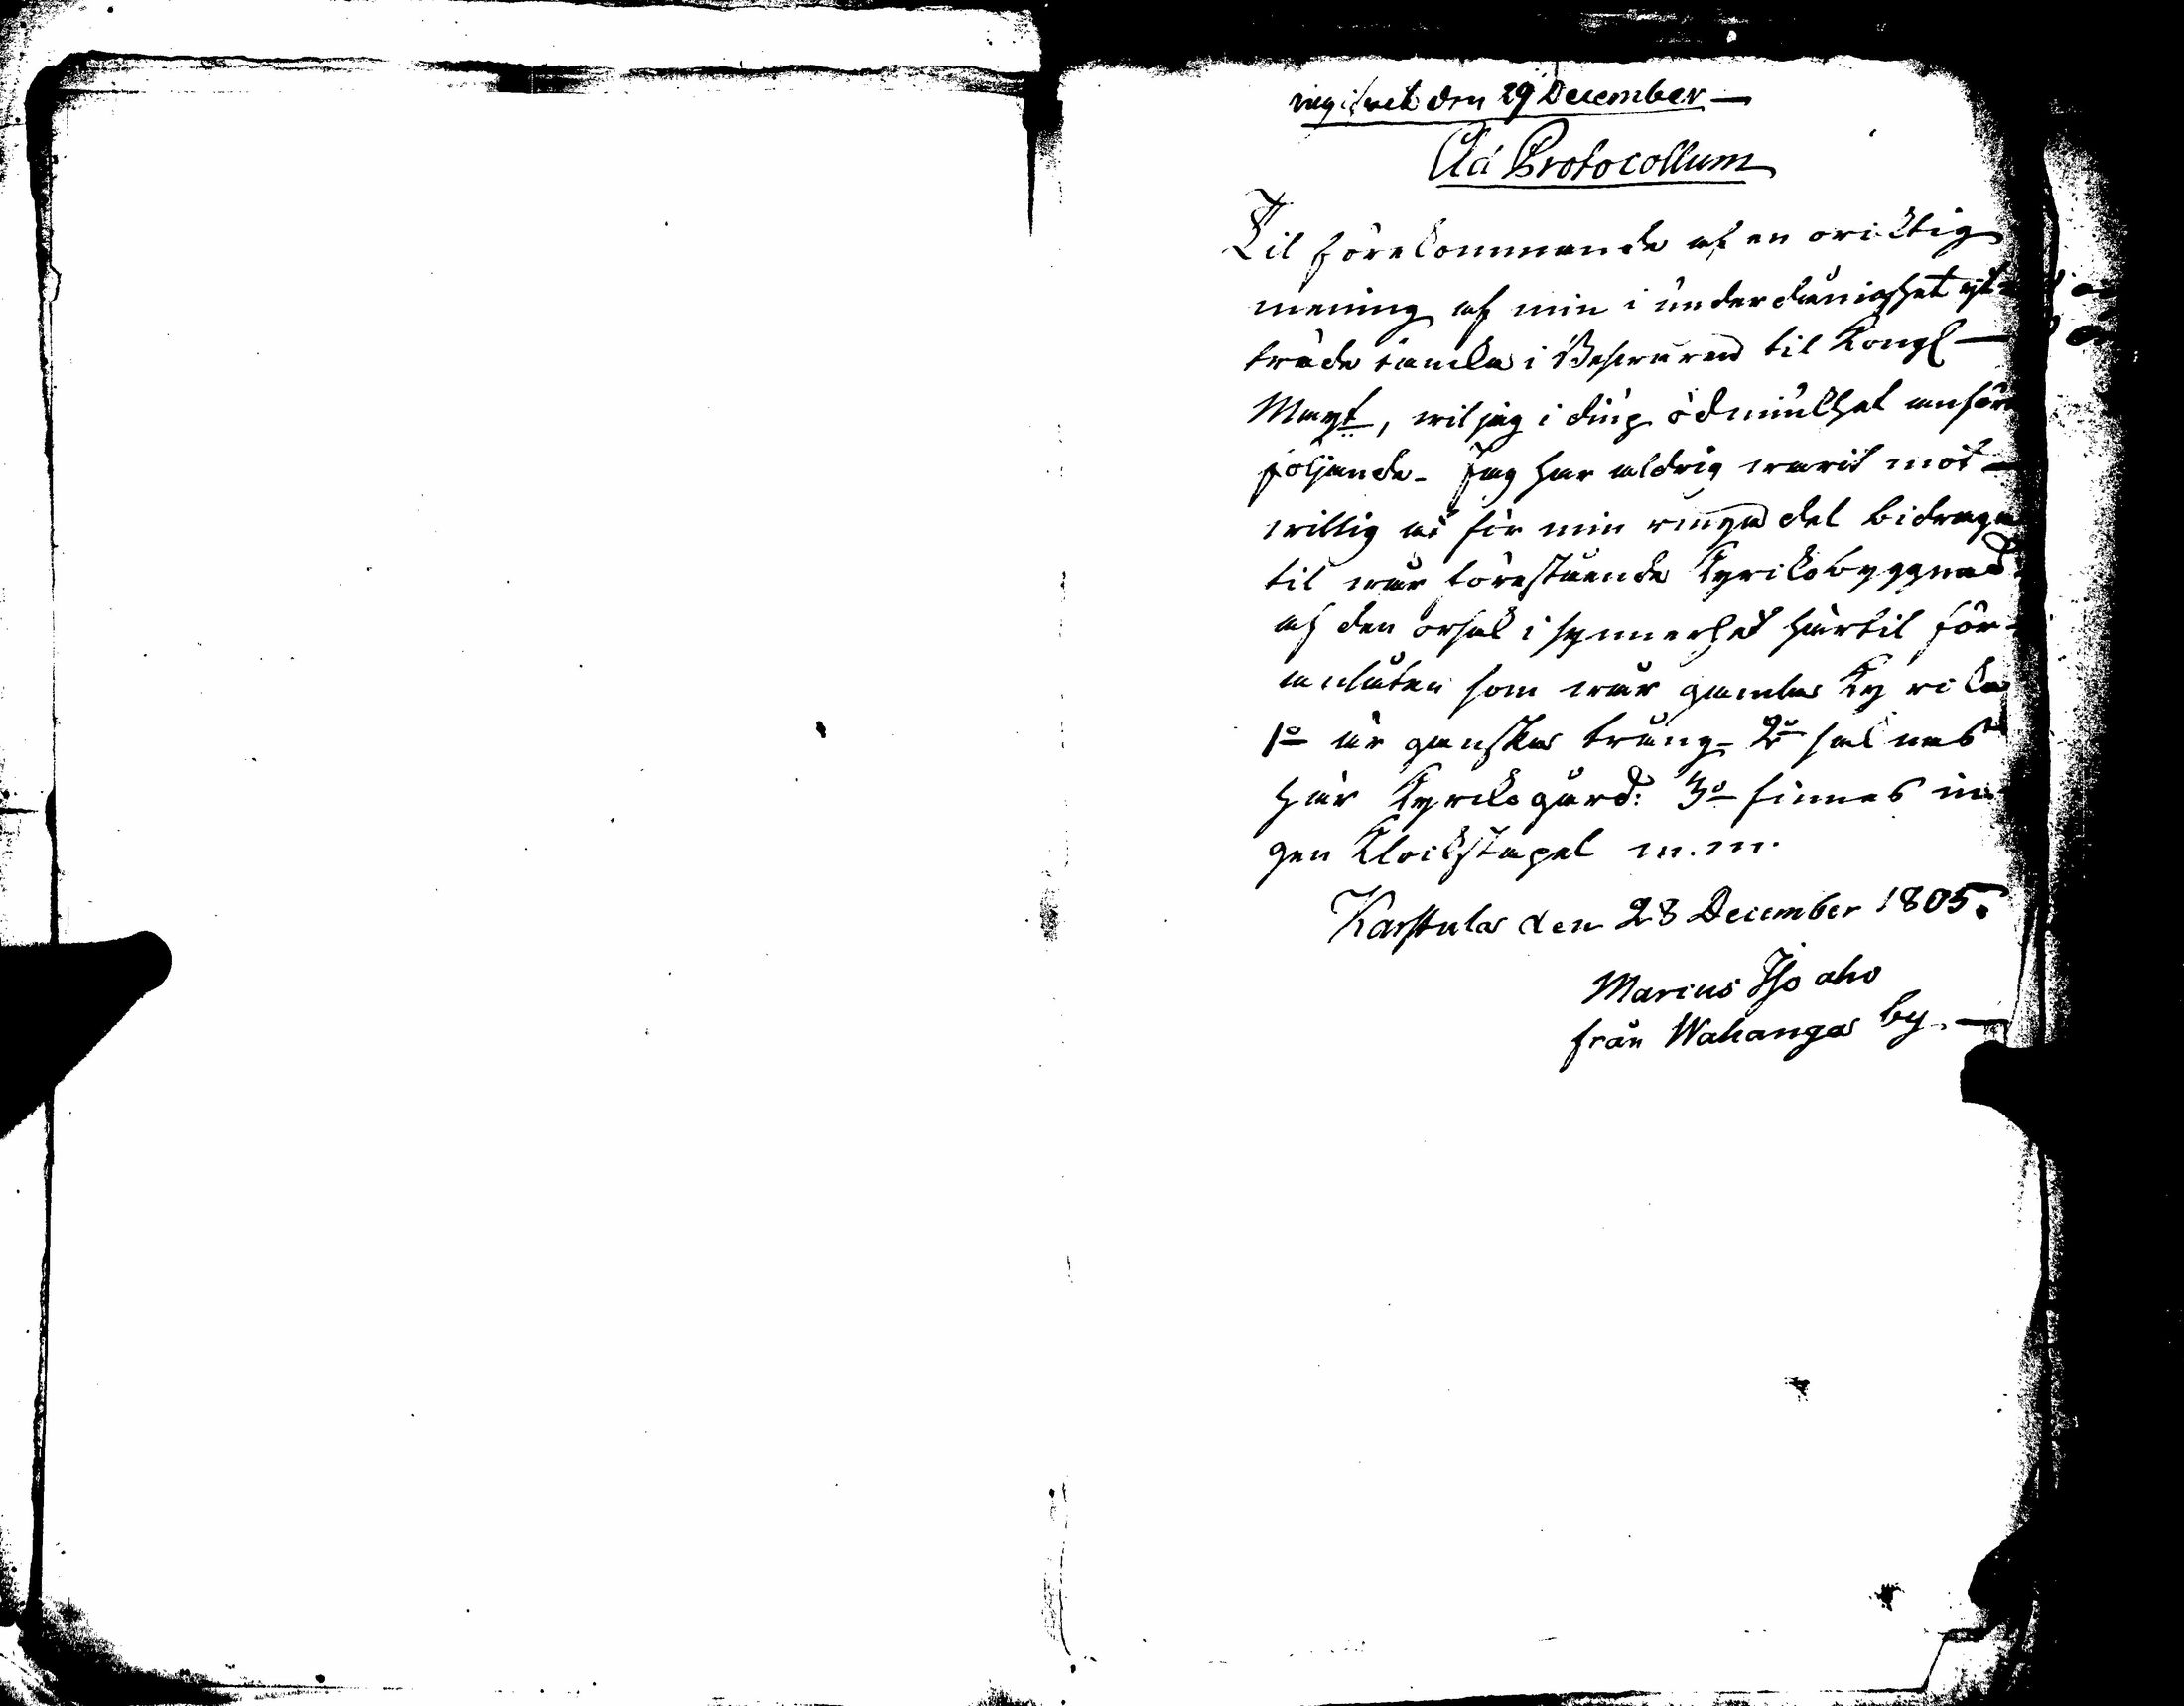 ingifvit den 29 December —
Ad Protocollum
Til förekommande af en oricktig
mening af min i underdånighet ytt-
rade tancka i Besvären til Kongl —
Mayt, wil jag i diup ödmiukhet anföra
följande. Jag har aldrig warit mot-
willig at för min ringa del bidraga
til wår förestående Kyrckobyggnad
af den orsak i synnerhet härtil för-
anlåten som wår gamla Kyricka
1o är ganska trång. 2o saknas
här Kyrckogård: 3o finnes in-
gen Klockstapel m.m.
Karstula den 28 December 1805.
Marcus Iso aho
från Wahanga by. —